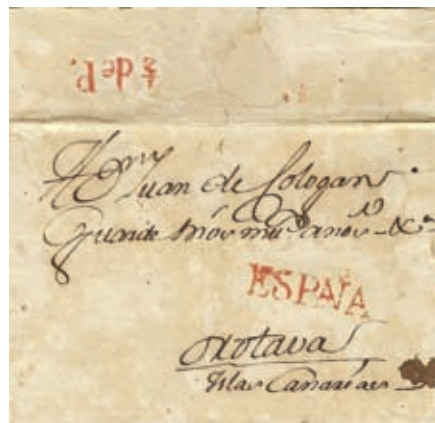 ½ de P.
Juan de Cologan
Guarde Nro. mu. anos. &a.
ESPAÑA
Orotava
Yslas Canarias